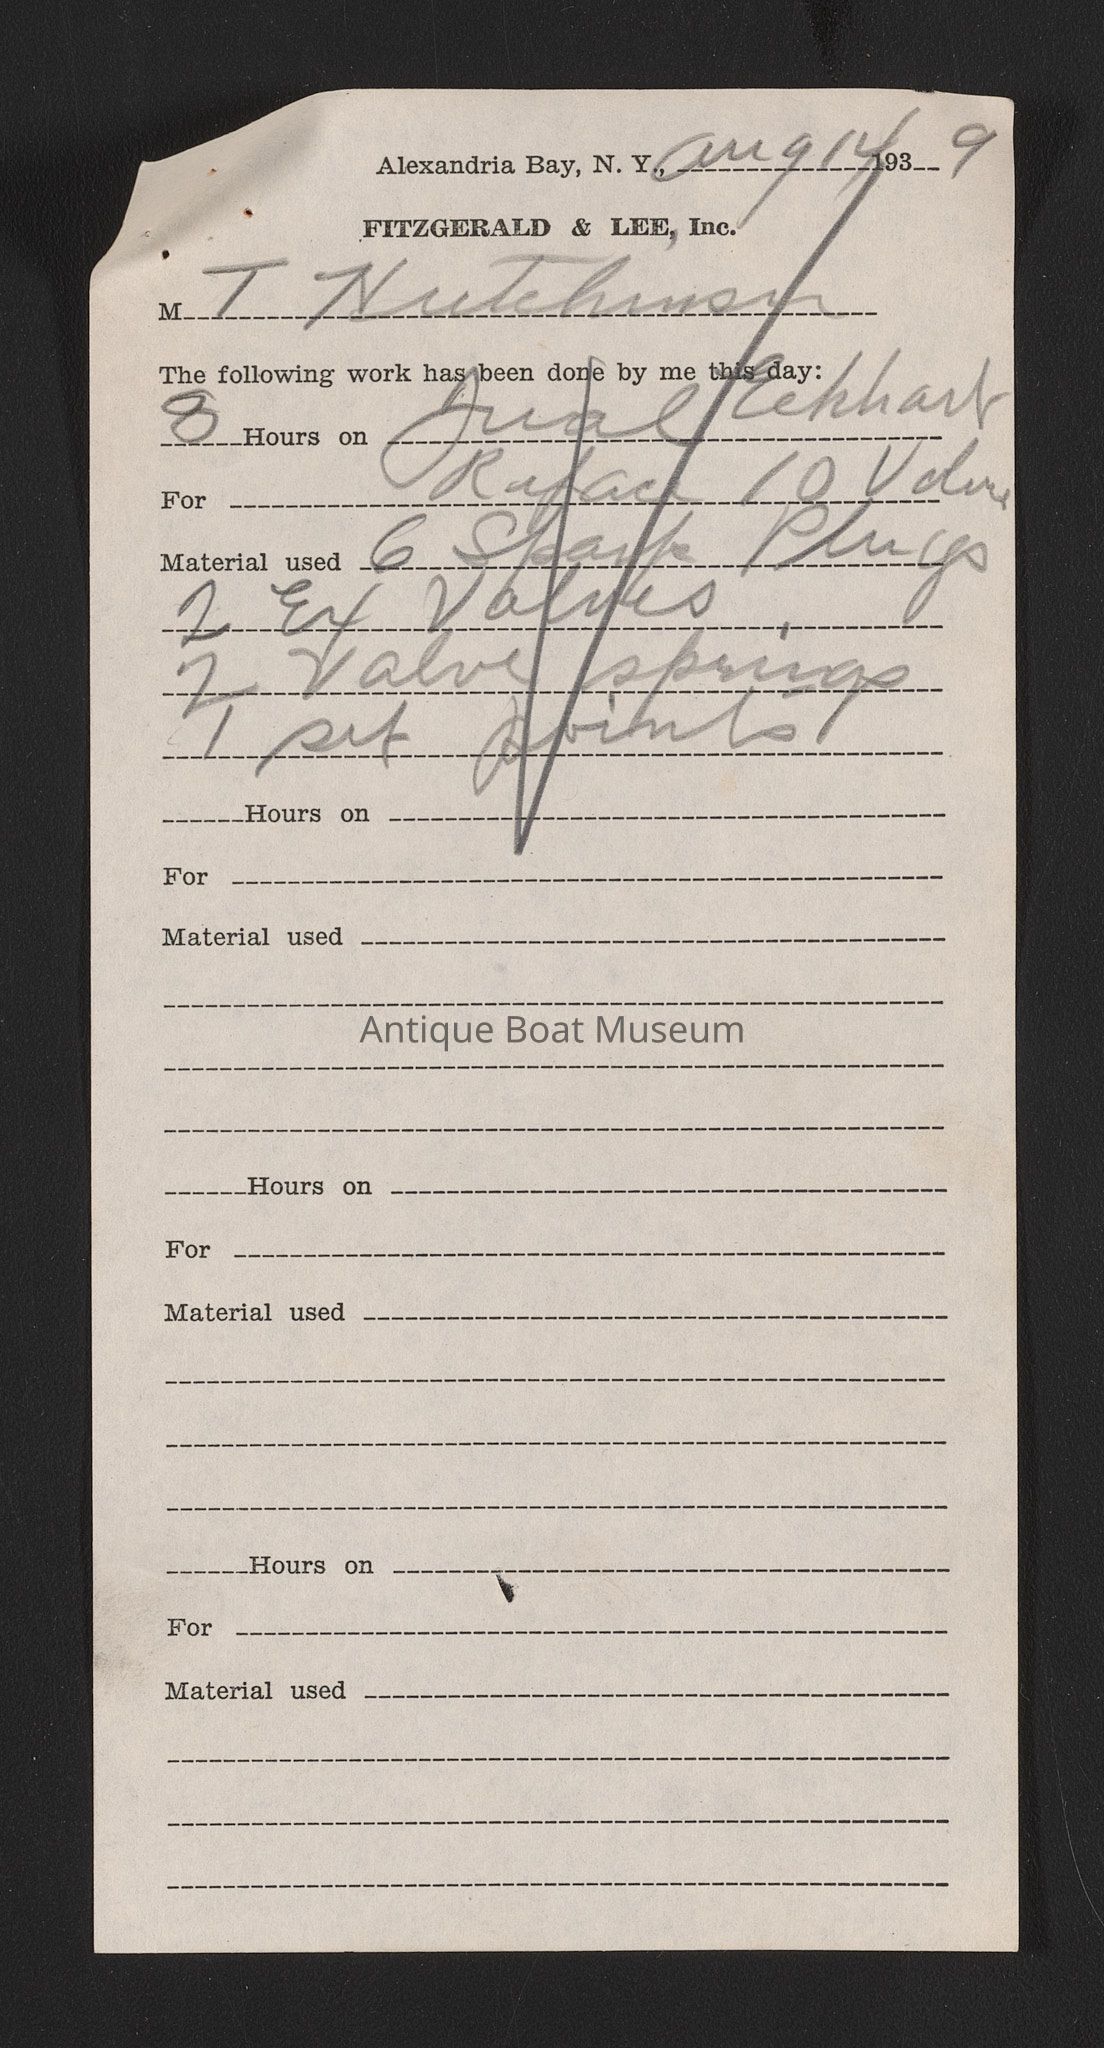 Alexandria Bay, N. Y., Aug 14 1939
FITZGERALD & LEE, Inc.
M T Hutchinson
The following work has been done by me this day:
8 Hours on Eckhart
For 10 Valve
Material used 6 Spark Plugs
2 Ex Valves
2 Valve springs
1 set points
Hours on
For
Material used
Antique Boat Museum
Hours on
For
Material used
Hours on
For
Material used